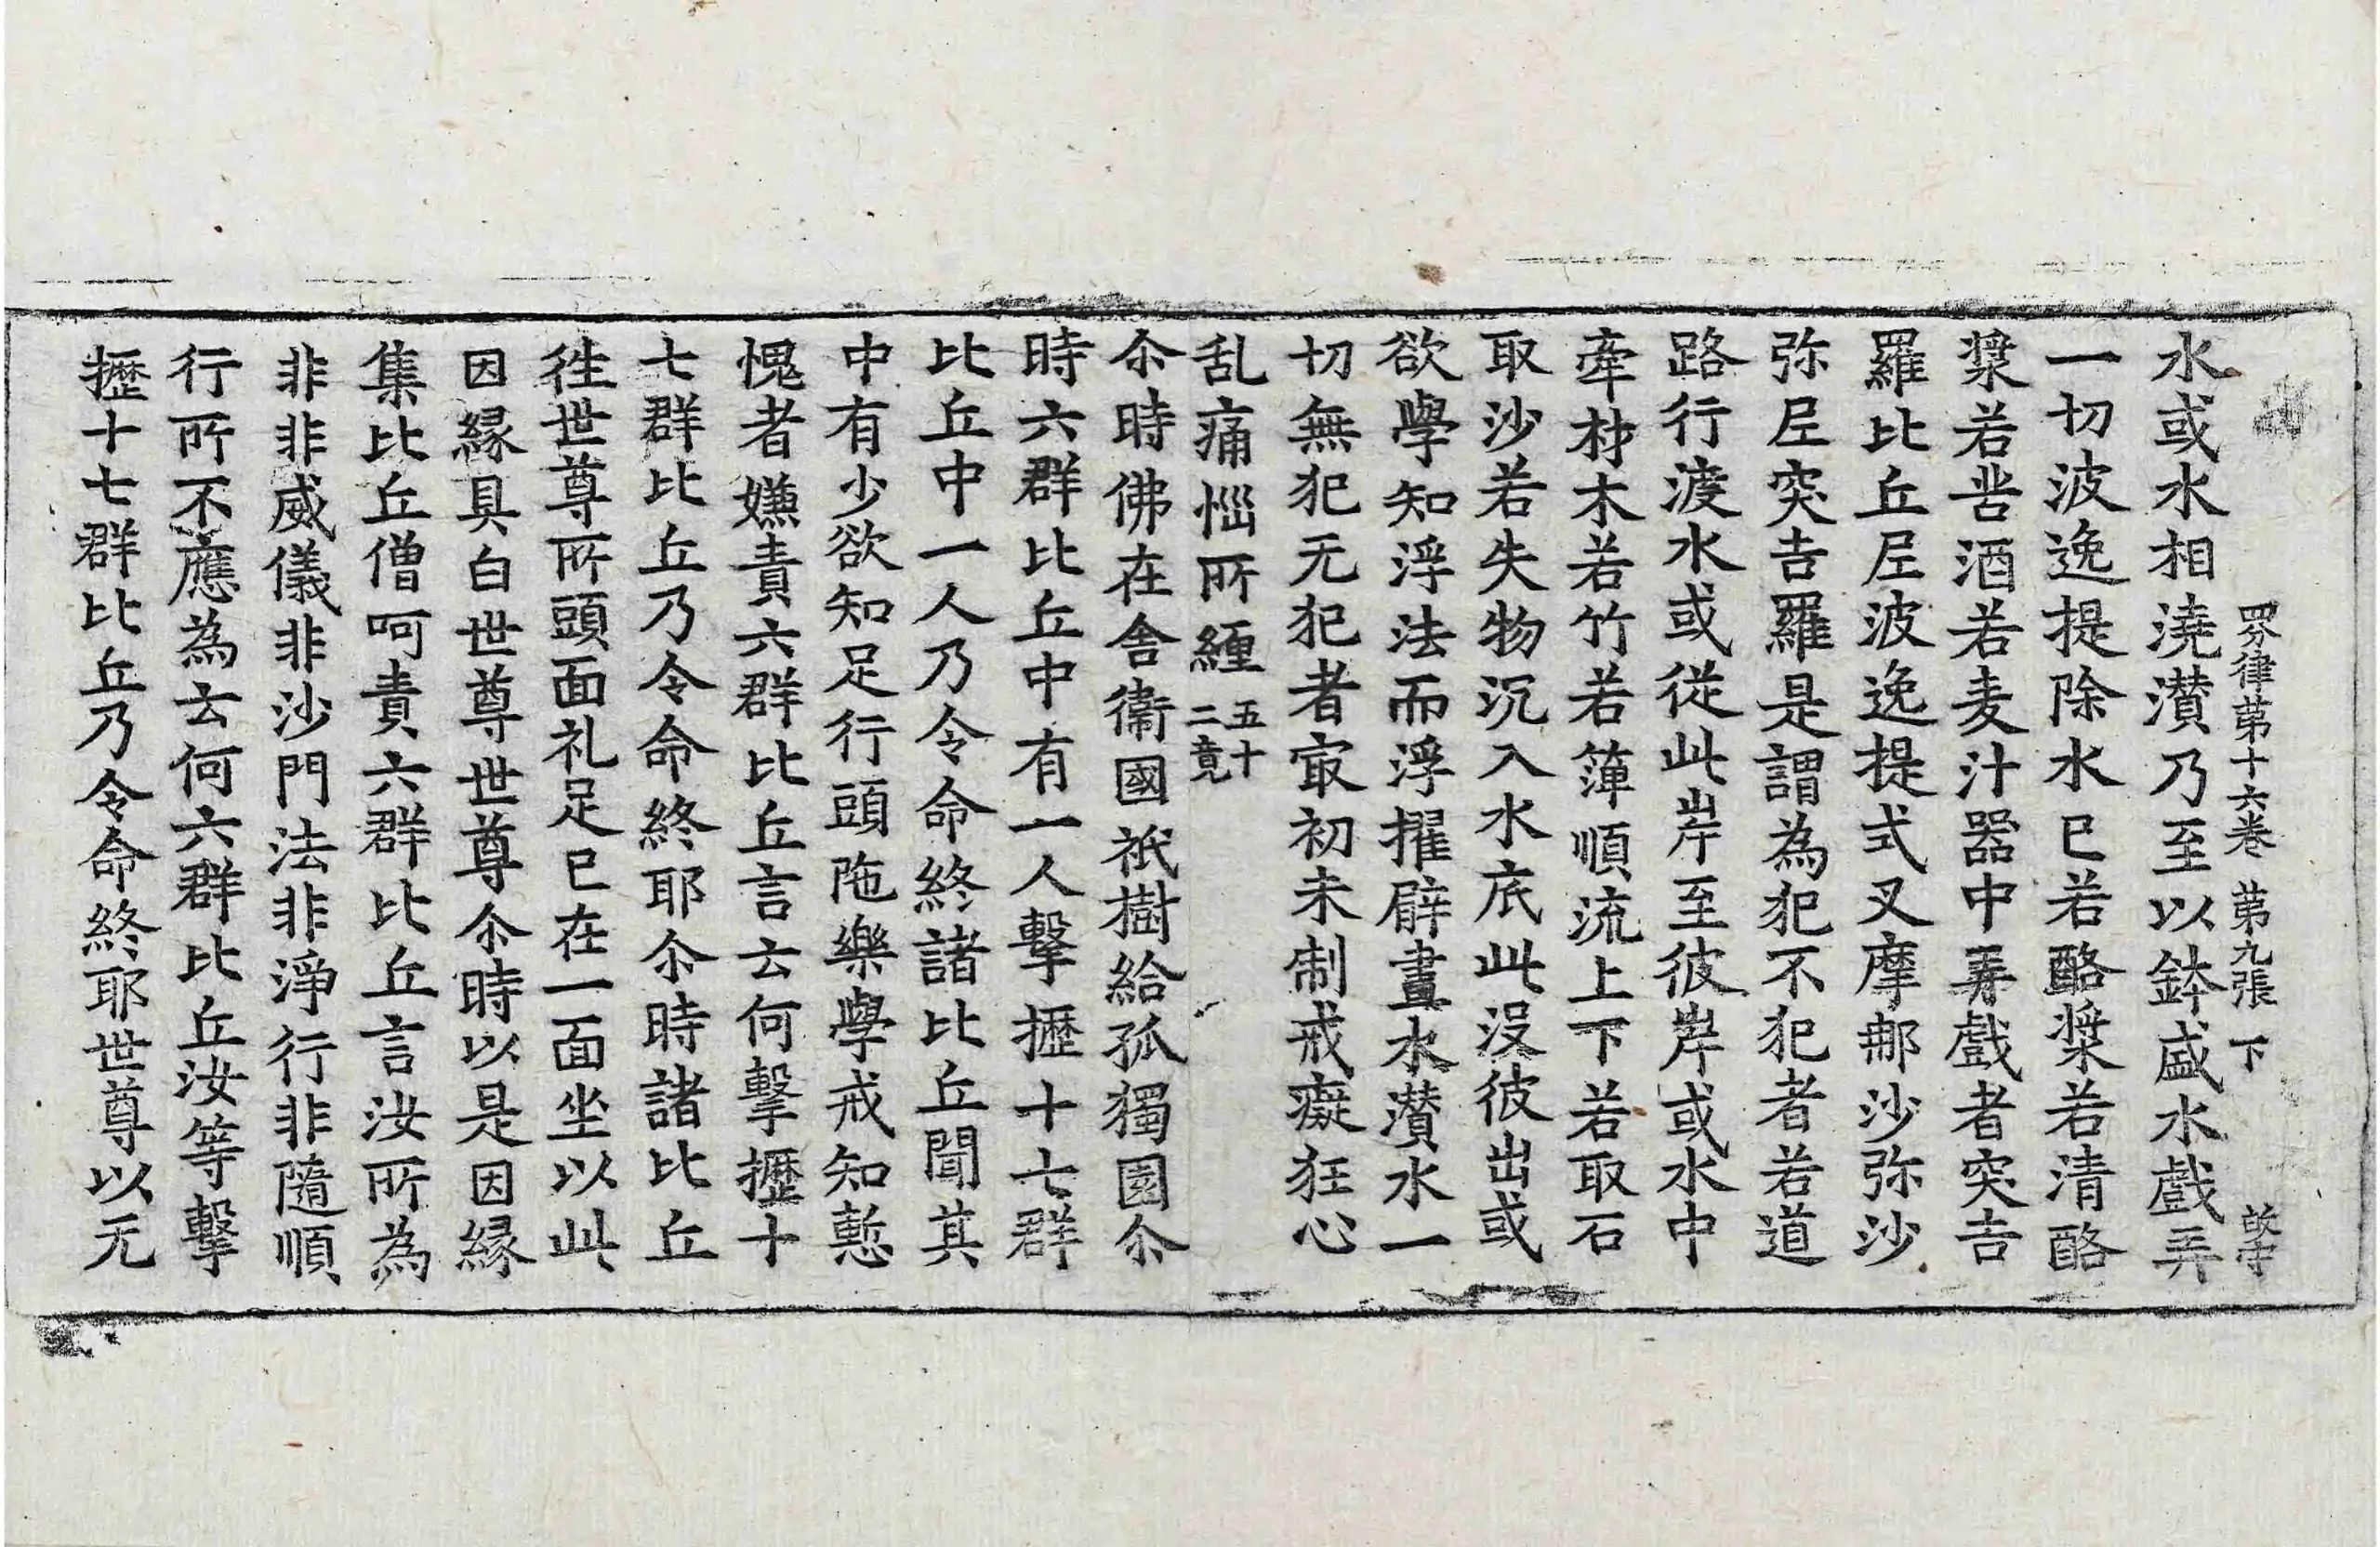 四分律第十六卷　第九張　下
水或水相澆灒乃至以鉢盛水戲弄
一切波逸提除水已若酪漿若清酪
漿若苦酒若麦汁器中弄戲者突吉
羅比丘尼波逸提式叉摩那沙弥沙
弥尼突吉羅是謂為犯不犯者若道
路行渡水或從此岸至彼岸或水中
牽材木若竹若簰順流上下若取石
取沙若失物沉入水底此沒彼出或
欲學知浮法而浮擢臂畫水灒水一
切無犯无犯者㝡初未制戒癡狂心
乱痛惱所纏五十二竟
尒時佛在舍衛國祇樹給孤獨園尒
時六群比丘中有一人擊攊十七群
比丘中一人乃令命終諸比丘聞其
中有少欲知足行頭陁樂學戒知慙
愧者嫌責六群比丘言云何擊攊十
七群比丘乃令命終耶尒時諸比丘
徃世尊所頭面礼足已在一面坐以此
因緣具白世尊世尊尒時以是因緣
集比丘僧呵責六群比丘言汝所為
非非威儀非沙門法非淨行非隨順
行所不應為云何六群比丘汝等擊
攊十七群比丘乃令命終耶世尊以无